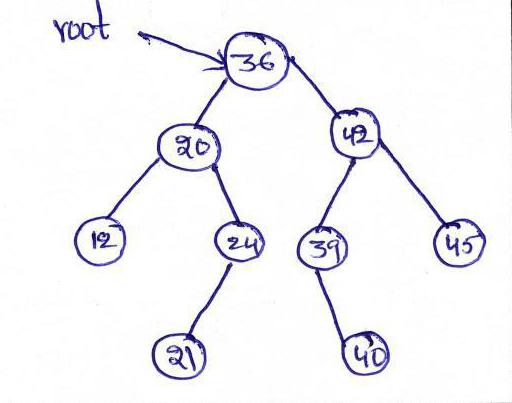 root
36
20
42
12
24
39
45
21
40